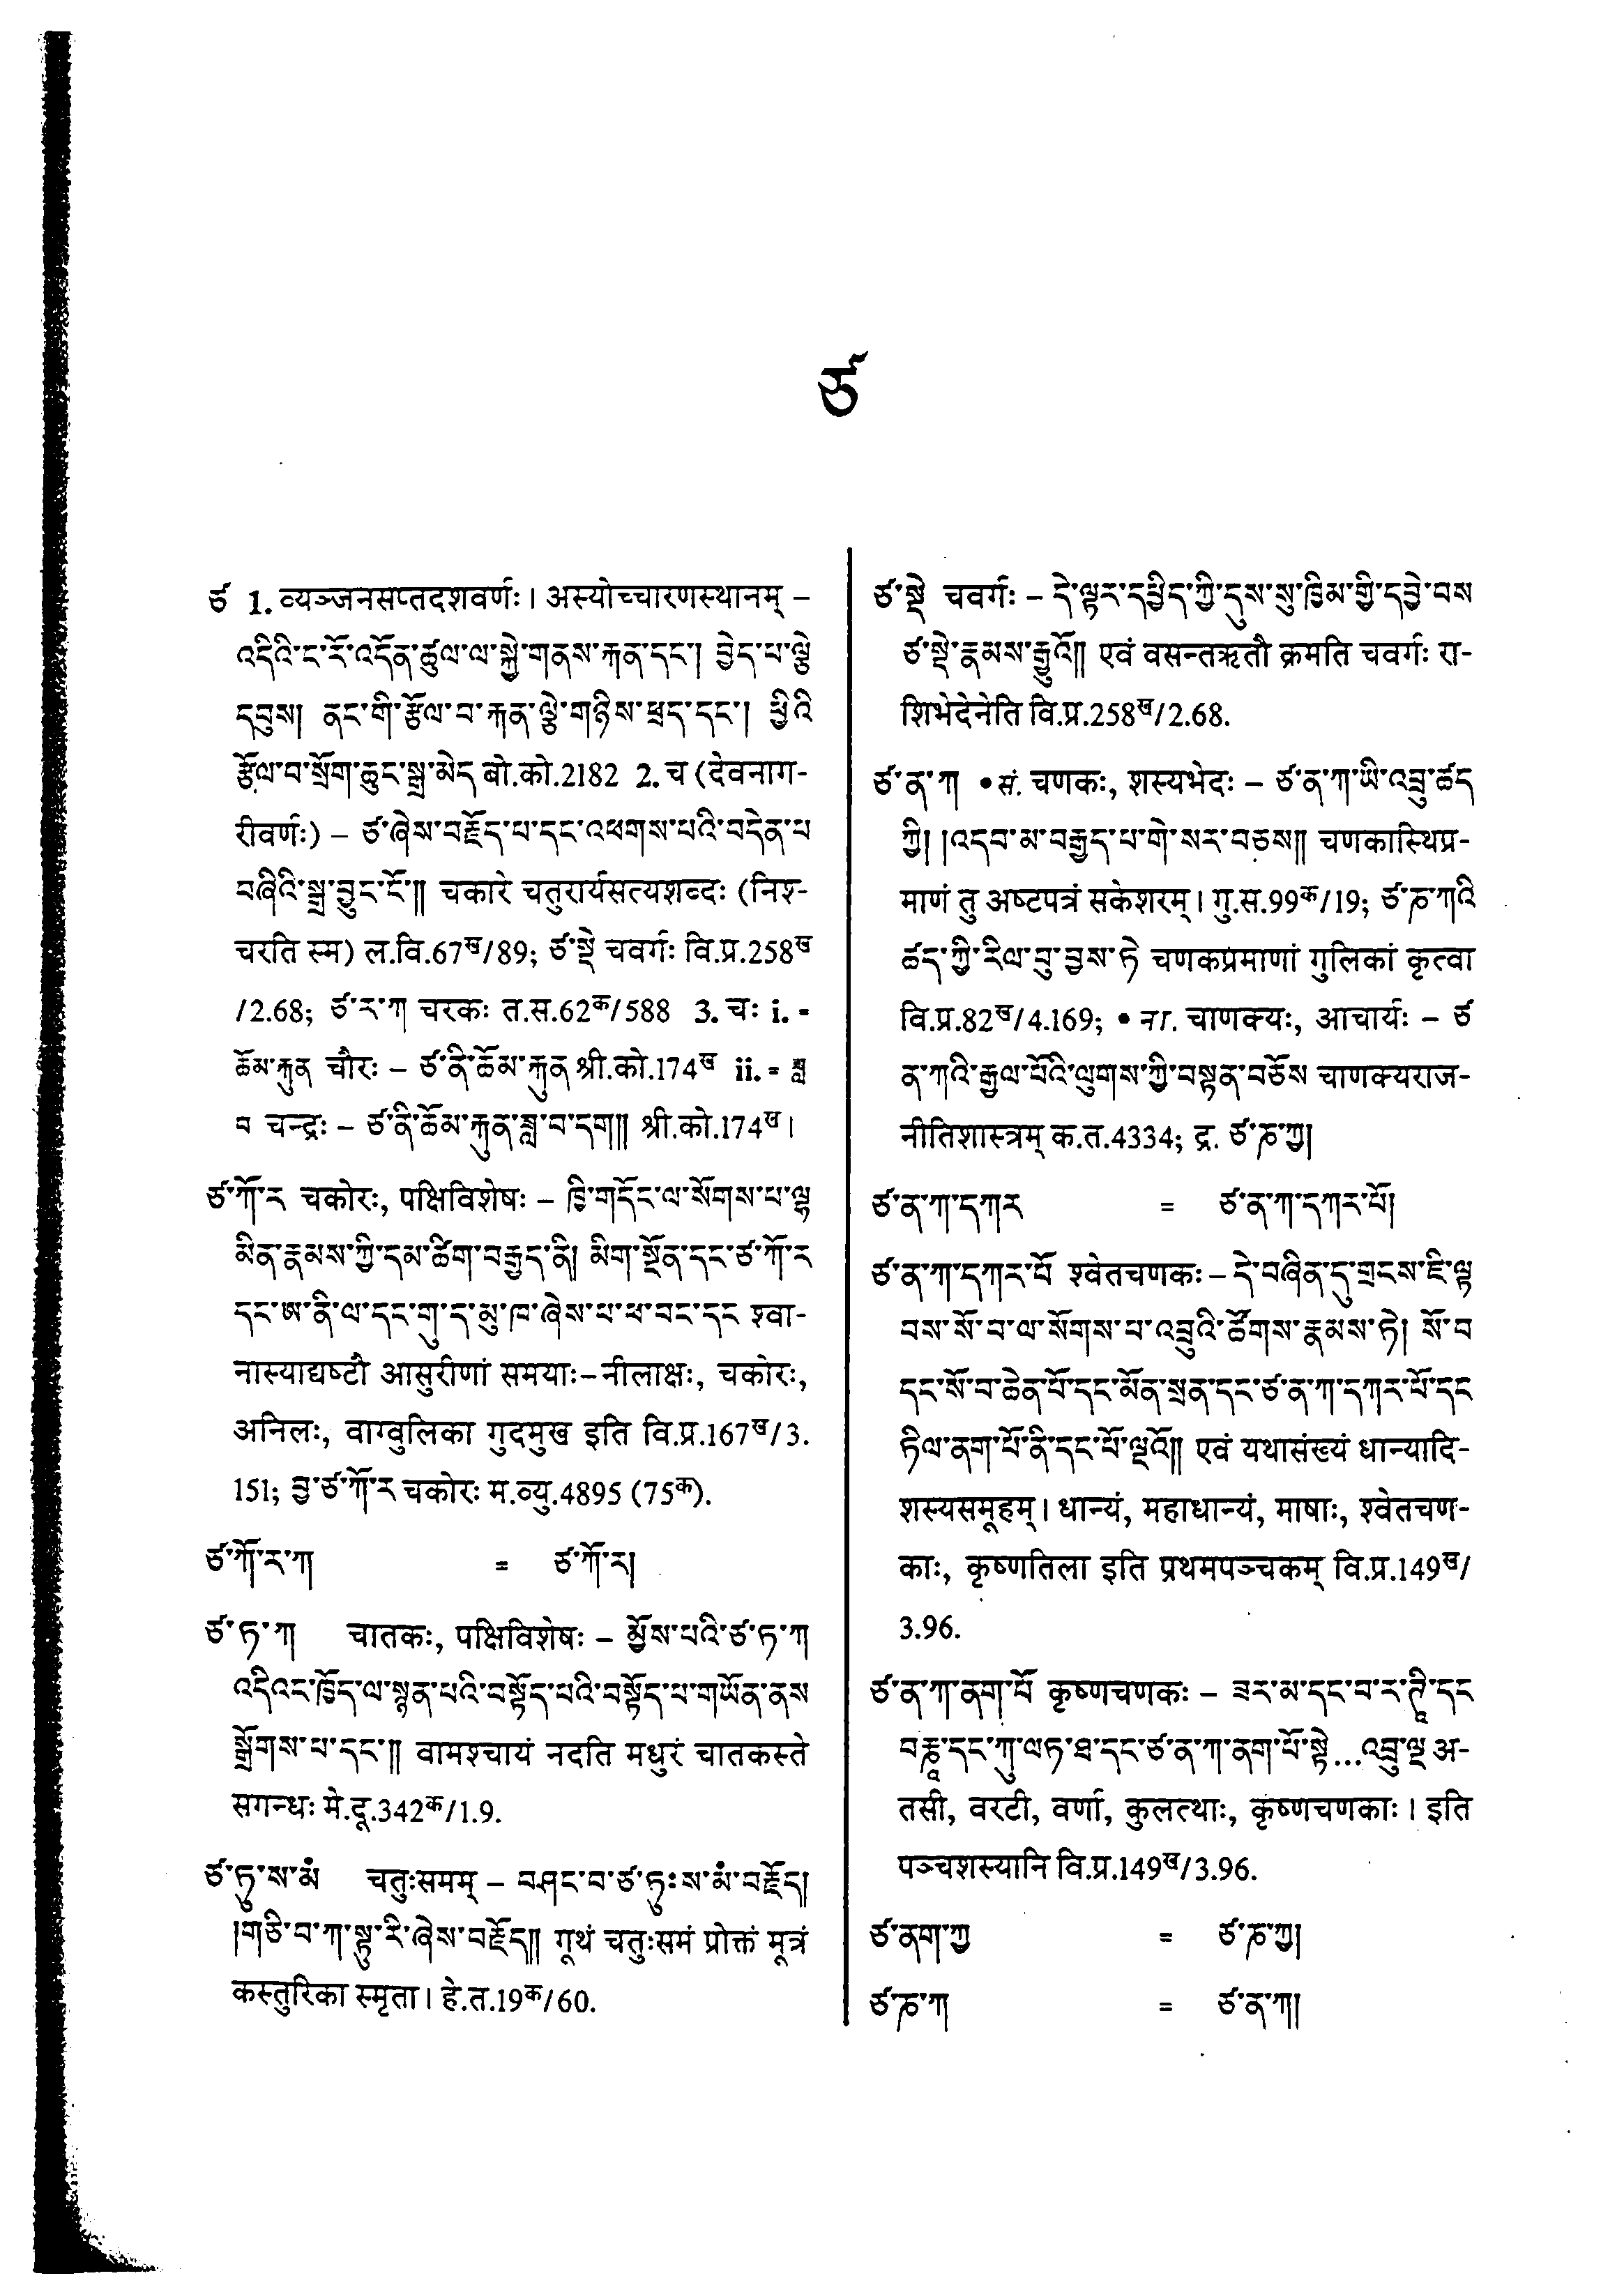 ཙ
ཙ 1. व्यञ्जनसप्तदशवर्णः । अस्योच्चारणस्थानम् –
འདིའི་ང་རོ་འདོན་ཚུལ་ལ་སྐྱེ་གནས་རྐན་དང་། བྱེད་པ་ལྕེ
དབུས། ནང་གི་རྩོལ་བ་རྐན་ལྕེ་གཉིས་ཕྲད་དང་། ཕྱིའི
རྩོལ་བ་སྲོག་ཆུང་སྒྲ་མེད बो.को.2182 2. च (देवनाग-
रीवर्णः) – ཙ་ཞེས་བརྗོད་པ་དང་འཕགས་པའི་བདེན་པ
བཞིའི་སྒྲ་བྱུང་ངོ་༎ चकारे चतुरार्यसत्यशब्दः (निश्-
चरति स्म) ल.वि.67ख/89; ཙ་སྡེ चवर्गः वि.प्र.258ख
/2.68; ཙ་ར་ཀ चरकः त.स.62क/588 3. चः i. =
ཆོམ་རྐུན चौरः – ཙ་ནི་ཆོམ་རྐུན श्री.को.174ख ii. = ཟླ
བ चन्द्रः – ཙ་ནི་ཆོམ་རྐུན་ཟླ་བ་དག༎ श्री.को.174ख ।
ཙ་ཀོ་ར चकोरः, पक्षिविशेषः – ཁྱི་གདོང་ལ་སོགས་པ་ལྷ
མིན་རྣམས་ཀྱི་དམ་ཚིག་བརྒྱད་ནི། མིག་སྔོན་དང་ཙ་ཀོ་ར
དང་ཨ་ནི་ལ་དང་གུ་ད་མུ་ཁ་ཞེས་པ་ཕ་བང་དང श्वा-
नास्याद्यष्टौ आसुरीणां समयाः–नीलाक्षः, चकोरः,
अनिलः, वाग्वुलिका गुदमुख इति वि.प्र.167ख/3.
151; བྱ་ཙ་ཀོ་ར चकोरः म.व्यु.4895 (75क).
ཙ་ཀོ་ར་ཀ = ཙ་ཀོ་ར།
ཙ་ཏ་ཀ चातकः, पक्षिविशेषः – མྱོས་པའི་ཙ་ཏ་ཀ
འདིའང་ཁྱོད་ལ་སྙན་པའི་བསྟོད་པའི་བསྟོད་པ་གཡོན་ནས
སྒྲོགས་པ་དང་༎ वामश्चायं नदति मधुरं चातकस्ते
सगन्धः मे.दू.342क/1.9.
ཙ་ཏུ་ས་མཾ चतुःसमम् – བཤང་བ་ཙ་ཏུཿས་མཾ་བརྗོད།
།གཅི་བ་ཀ་སྟུ་རི་ཞེས་བརྗོད༎ गूथं चतुःसमं प्रोक्तं मूत्रं
कस्तुरिका स्मृता । हे.त.19क/60.
ཙ་སྡེ चवर्गः – དེ་ལྟར་དཔྱིད་ཀྱི་དུས་སུ་ཁྱིམ་གྱི་དབྱེ་བས
ཙ་སྡེ་རྣམས་རྒྱུའོ༎ एवं वसन्तऋतौ क्रमति चवर्गः रा-
शिभेदेनेति वि.प्र.258ख/2.68.
ཙ་ན་ཀ • सं. चणकः, शस्यभेदः – ཙ་ན་ཀ་ཡི་འབྲུ་ཚད
ཀྱི། །འདབ་མ་བརྒྱད་པ་གེ་སར་བཅས༎ चणकास्थिप्र-
माणं तु अष्टपत्रं सकेशरम् । गु.स.99क/19; ཙ་ཎ་ཀའི
ཚད་ཀྱི་རིལ་བུ་བྱས་ཏེ चणकप्रमाणां गुलिकां कृत्वा
वि.प्र.82ख/4.169; • ना. चाणक्यः, आचार्यः – ཙ
ན་ཀའི་རྒྱལ་པོའི་ལུགས་ཀྱི་བསྟན་བཅོས चाणक्यराज-
नीतिशास्त्रम् क.त.4334; द्र. ཙ་ཎ་ཀྱ།
ཙ་ན་ཀ་དཀར = ཙ་ན་ཀ་དཀར་པོ།
ཙ་ན་ཀ་དཀར་པོ श्वेतचणकः – དེ་བཞིན་དུ་གྲངས་ཇི་ལྟ
བས་སོ་བ་ལ་སོགས་པ་འབྲུའི་ཚོགས་རྣམས་ཏེ། སོ་བ
དང་སོ་བ་ཆེན་པོ་དང་མོན་སྲན་དང་ཙ་ན་ཀ་དཀར་པོ་དང
ཏིལ་ནག་པོ་ནི་དང་པོ་ལྔའོ༎ एवं यथासंख्यं धान्यादि-
शस्यसमूहम् । धान्यं, महाधान्यं, माषाः, श्वेतचण-
काः, कृष्णतिला इति प्रथमपञ्चकम् वि.प्र.149ख/
3.96.
ཙ་ན་ཀ་ནག་པོ कृष्णचणकः – ཟར་མ་དང་བ་ར་ཊཱི་དང
བརྞཱ་དང་ཀུ་ལཏ་ཐ་དང་ཙ་ན་ཀ་ནག་པོ་སྟེ...འབྲུ་ལྔ अ-
तसी, वरटी, वर्णा, कुलत्थाः, कृष्णचणकाः । इति
पञ्चशस्यानि वि.प्र.149ख/3.96.
ཙ་ནག་ཀྱ = ཙ་ཎ་ཀྱ།
ཙ་ཎ་ཀ = ཙ་ན་ཀ།